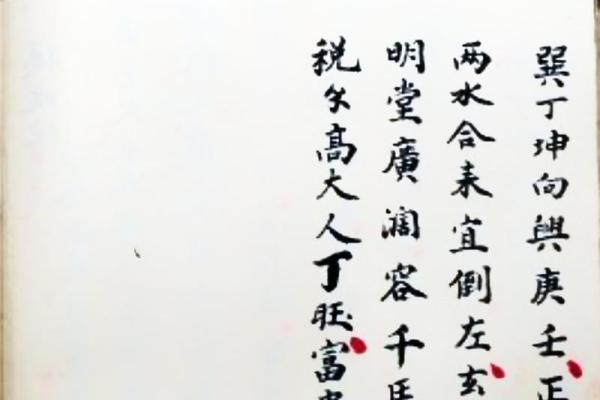 巽丁坤向與庚壬正
两水合来宜倒左玄
明堂廣濶容千
税尔高大人丁旺富